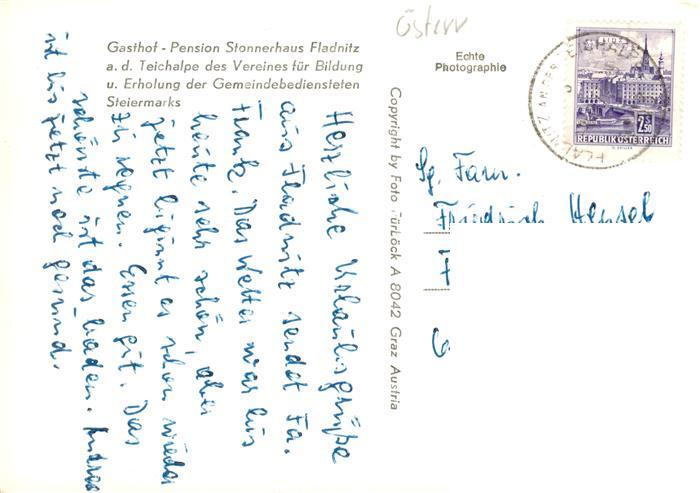 Gasthof - Pension Stonnerhaus Fladnitz
a. d. Teichalpe des Vereines für Bildung
u. Erholung der Gemeindebediensteten
Steiermarks
Herzliche Urlaubsgrüße
aus Fladnitz sendet Fa.
Frank. Das Wetter war bis
heute sehr schön, aber
jetzt beginnt es schon wieder
zu regnen. Essen gut. Das
schönste ist das baden.
ist bis jetzt noch gesund.
Österr
Echte
Photographie
Copyright by Foto Fürböck A 8042 Graz Austria
2.50
REPUBLIK ÖSTERREICH
FLADNITZ AN DER TEICHALPE
Sg. Fam.
Friedrich Hensel